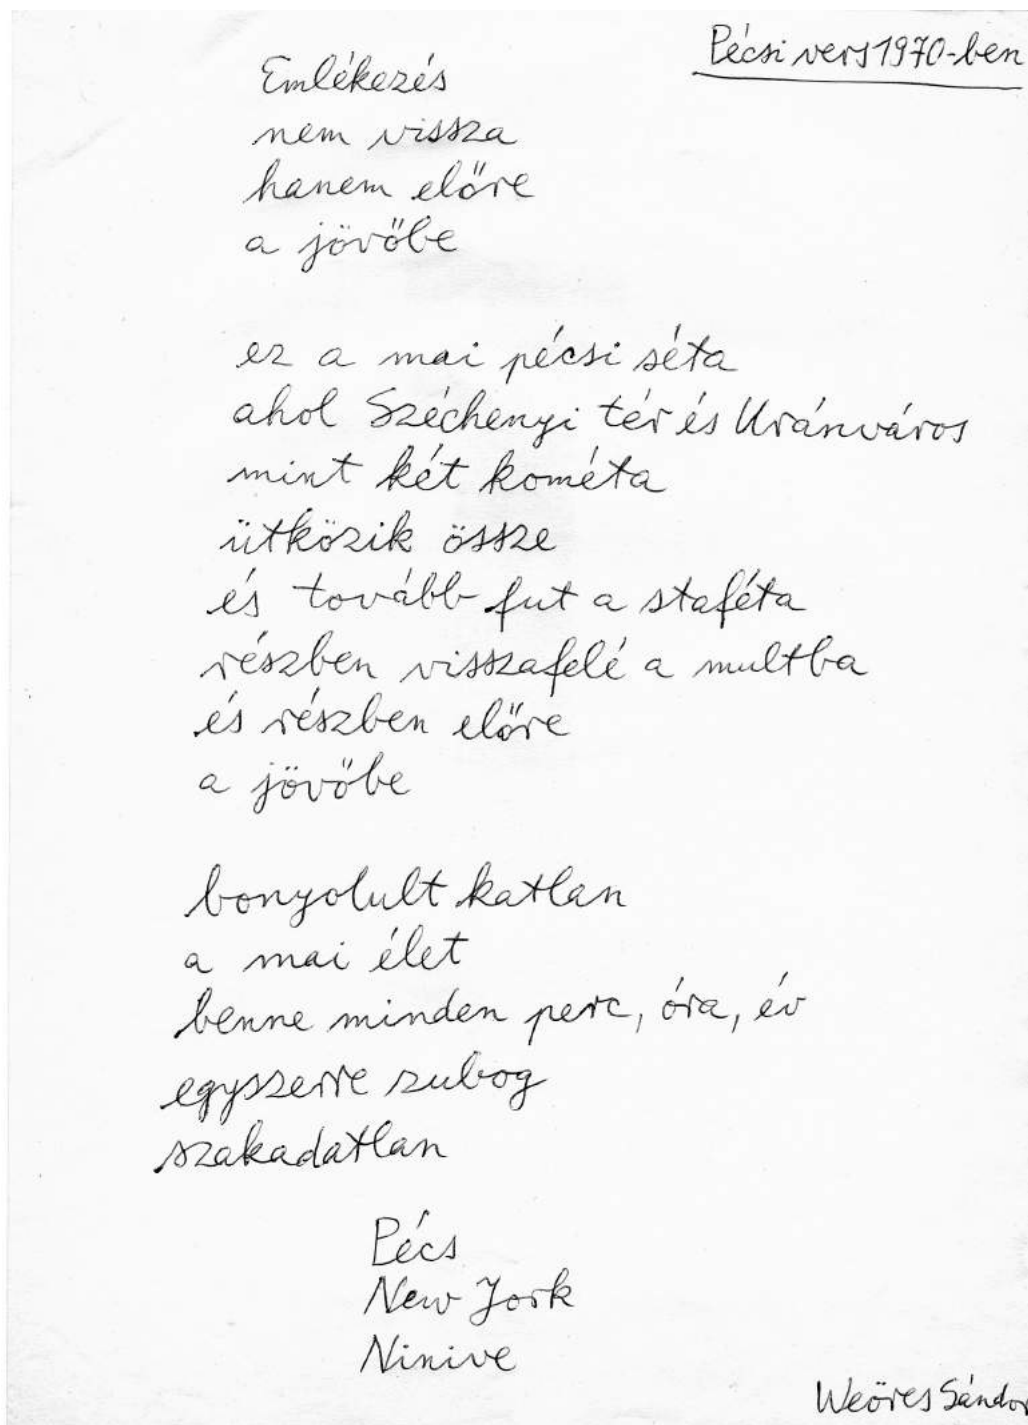 Pécsi vers 1970-ben
Emlékezés
nem vissza
hanem előre
a jövőbe
ez a mai pécsi séta
ahol Széchenyi tér és Uránváros
mint két kométa
ütközik össze
és tovább fut a staféta
részben visszafelé a multba
és részben előre
a jövőbe
bonyolult katlan
a mai élet
benne minden perc, óra, év
egyszerre zubog
szakadatlan
Pécs
New York
Ninive
Weöres Sándor